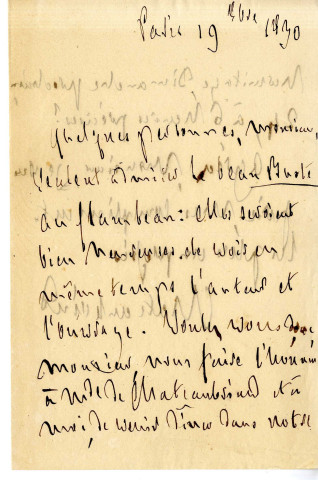 Paris 19 Xbre 1830
Quelques personnes, monsieur,
veulent admirer le beau Buste
au flambeau : elles seroient
bien heureuses de voir en
même temps l'auteur et
l'ouvrage. Voulez vous donc
monsieur, nous faire l'honneur
à Mde de Chateaubriand et à
moi, de venir dîner dans notre